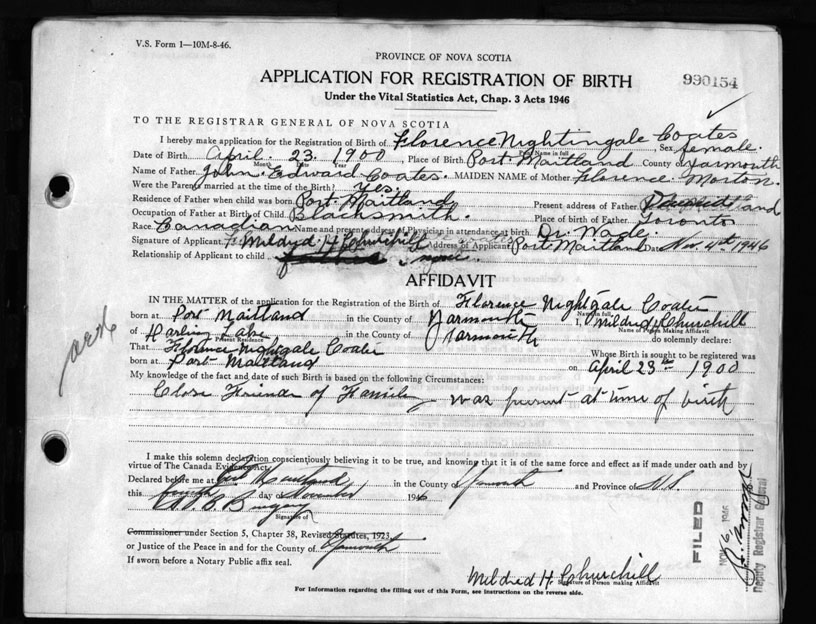 V.S. Form 1—10M-8-46.
PROVINCE OF NOVA SCOTIA
APPLICATION FOR REGISTRATION OF BIRTH
990154
Under the Vital Statistics Act, Chap. 3 Acts 1946
TO THE REGISTRAR GENERAL OF NOVA SCOTIA
I hereby make application for the Registration of Birth of Florence Nightingale Coates Sex female.
Print Name in full
Date of Birth April 23 1900, Place of Birth Port Maitland County of Yarmouth
Month Date Year
Name of Father John Edward Coates. MAIDEN NAME of Mother Florence Morton.
Were the Parents married at the time of the Birth? yes.
Residence of Father when child was born Port Maitland Present address of Father
Occupation of Father at Birth of Child Blacksmith. Place of birth of Father Toronto
Race Canadian Name and present address of Physician in attendance at birth Dr. Wade.
Signature of Applicant Mildred H Churchill Address of Applicant Port Maitland Date Nov. 4th 1946
Relationship of Applicant to child none.
AFFIDAVIT
IN THE MATTER of the application for the Registration of the Birth of Florence Nightgale Coates
Name in full
born at Port Maitland in the County of Yarmouth I, Mildred H Churchill
Name of Person Making Affidavit
of Harling Lake in the County of Yarmouth do solemnly declare:
Present Residence
That Florence Nightgale Coates Whose Birth is sought to be registered was
born at Port Maitland on April 23rd 1900
My knowledge of the fact and date of such Birth is based on the following Circumstances:
Close Friends of Family was present at time of birth
I make this solemn declaration conscientiously believing it to be true, and knowing that it is of the same force and effect as if made under oath and by
virtue of The Canada Evidence Act.
Declared before me at Port Maitland in the County of Yarmouth and Province of N.S.
this fourth day of November 1946
Signature of
Commissioner under Section 5, Chapter 38, Revised Statutes, 1923,
or Justice of the Peace in and for the County of Yarmouth
If sworn before a Notary Public affix seal.
Mildred H. Churchill
Signature of Person making Affidavit
For Information regarding the filling out of this Form, see instructions on the reverse side.
FILED
NOV 6, 1946
Deputy Registrar General